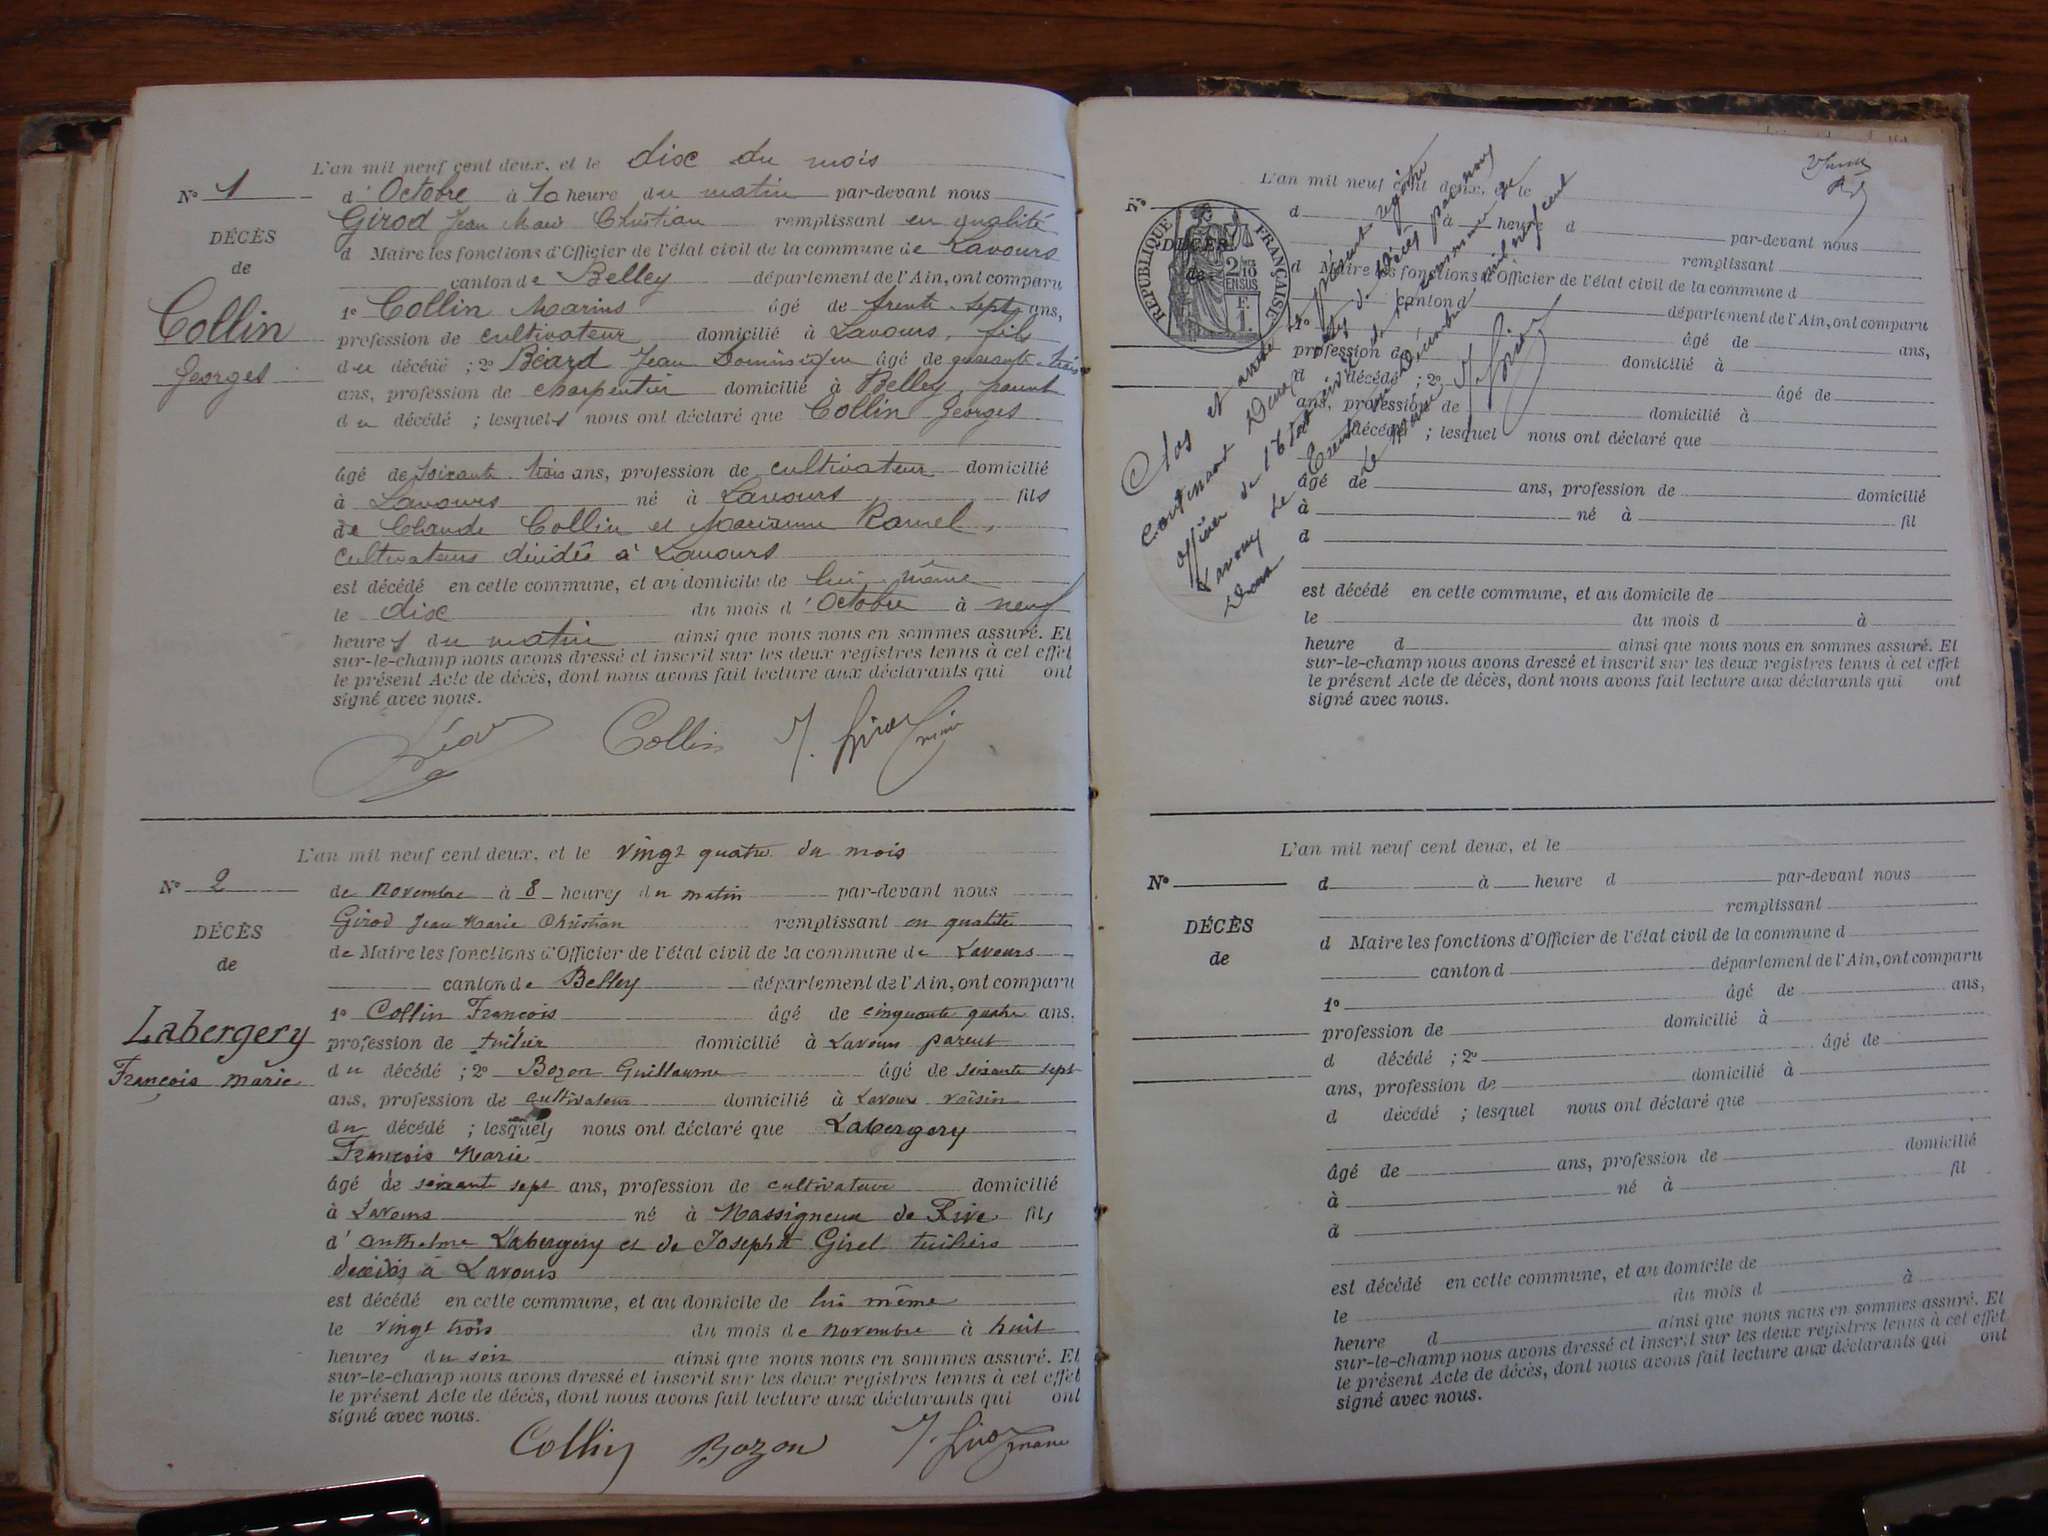 L'an mil neuf cent deux, et le dix du mois
N° 1
d'Octobre à 10 heure du matin par-devant nous
Girod Jean Marie Christian remplissant en qualité
DÉCÈS
d Maire les fonctions d'Officier de l'état civil de la commune de Lavours
de
canton de Belley département de l'Ain, ont comparu
Collin
Georges
1° Collin Marius âgé de trente sept ans,
profession de cultivateur domicilié à Lavours, fils
du décédé ; 2° Béard Jean Dominique âgé de quarante trois
ans, profession de charpentier domicilié à Belley, parent
du décédé ; lesquels nous ont déclaré que Collin Georges
âgé de soixante trois ans, profession de cultivateur domicilié
à Lavours né à Lavours fils
de Claude Collin et Marianne Ramel,
cultivateurs décédés à Lavours
est décédé en cette commune, et au domicile de lui même
le dix du mois d'Octobre à neuf
heures du matin ainsi que nous nous en sommes assuré. Et
sur-le-champ nous avons dressé et inscrit sur les deux registres tenus à cet effet
le présent Acte de décès, dont nous avons fait lecture aux déclarants qui ont
signé avec nous.
Collin J. Girod
L'an mil neuf cent deux, et le vingt quatre du mois
N° 2
de novembre à 8 heures du matin par-devant nous
Girod Jean Marie Christian remplissant en qualité
DÉCÈS
de Maire les fonctions d'Officier de l'état civil de la commune de Lavours
de
canton de Belley département de l'Ain, ont comparu
Labergery
François Marie
1° Collin François âgé de cinquante quatre ans.
profession de tuilier domicilié à Lavours parent
du décédé ; 2° Bozon Guillaume âgé de soixante sept
ans, profession de cultivateur domicilié à Lavours voisin
du décédé ; lesquels nous ont déclaré que Labergery
François Marie
âgé de soixante sept ans, profession de cultivateur domicilié
à Lavours né à Massigneux de Rive fils
d'anthelme Labergery et de Josephte Girel tuiliers
décédés à Lavours
est décédé en cette commune, et au domicile de lui même
le vingt trois du mois de novembre à huit
heures du soir ainsi que nous nous en sommes assuré. Et
sur-le-champ nous avons dressé et inscrit sur les deux registres tenus à cet effet
le présent Acte de décès, dont nous avons fait lecture aux déclarants qui ont
signé avec nous.
Collin Bozon J. Girod maire
L'an mil neuf cent deux, et le
N°
d à heure d par-devant nous
remplissant
DÉCÈS
de
RÉPUBLIQUE FRANÇAISE
2/10 EN SUS
F. 1.
d Maire les fonctions d'Officier de l'état civil de la commune d
canton d département de l'Ain, ont comparu
1° âgé de ans,
profession de domicilié à
d décédé ; 2° âgé de
ans, profession de domicilié à
d décédé ; lesquel nous ont déclaré que
Clos et arrêté le présent registre
contenant Deux actes de Décès par nous
officier de l'Etat civil de la commune de
Lavours le Trente un Décembre mil neuf cent
Deux
Le Maire
J. Girod
âgé de ans, profession de domicilié
à né à fil
d
est décédé en cette commune, et au domicile de
le du mois d à
heure d ainsi que nous nous en sommes assuré. Et
sur-le-champ nous avons dressé et inscrit sur les deux registres tenus à cet effet
le présent Acte de décès, dont nous avons fait lecture aux déclarants qui ont
signé avec nous.
L'an mil neuf cent deux, et le
N°
d à heure d par-devant nous
remplissant
DÉCÈS
d Maire les fonctions d'Officier de l'état civil de la commune d
de
canton d département de l'Ain, ont comparu
1° âgé de ans,
profession de domicilié à
d décédé ; 2° âgé de
ans, profession de domicilié à
d décédé ; lesquel nous ont déclaré que
âgé de ans, profession de domicilié
à né à fil
d
est décédé en cette commune, et au domicile de
le du mois d à
heure d ainsi que nous nous en sommes assuré. Et
sur-le-champ nous avons dressé et inscrit sur les deux registres tenus à cet effet
le présent Acte de décès, dont nous avons fait lecture aux déclarants qui ont
signé avec nous.